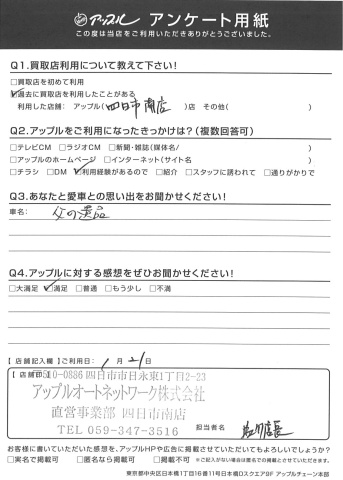 アップル アンケート用紙
この度は当店をご利用いただきありがとうございました。
Q1.買取店利用について教えて下さい!
□買取店を初めて利用
☑過去に買取店を利用したことがある
利用した店舗: アップル(四日市南店)店 その他( )
Q2.アップルをご利用になったきっかけは?(複数回答可)
□テレビCM □ラジオCM □新聞・雑誌(媒体名/ )
□アップルのホームページ □インターネット(サイト名 )
□チラシ □DM ☑利用経験があるので □紹介 □スタッフに誘われて □通りがかりで
Q3.あなたと愛車との思い出をお聞かせください!
車名: 父の遺品
Q4.アップルに対する感想をぜひお聞かせください!
□大満足 ☑満足 □普通 □もう少し □不満
【店舗記入欄】ご利用日: 1月21日
【店舗印】〒510-0886 四日市市日永東1丁目2-23
アップルオートネットワーク株式会社
直営事業部 四日市南店
TEL 059-347-3516
担当者名 店長
お客様に書いていただいた感想を、アップルHPや広告に掲載させていただいてもよろしいでしょうか?
□実名で掲載可 □匿名なら掲載可 □掲載不可 ※ご記入がない場合は匿名での掲載とさせていただきます。
東京都中央区日本橋1丁目16番11号日本橋Dスクエア9F アップルチェーン本部